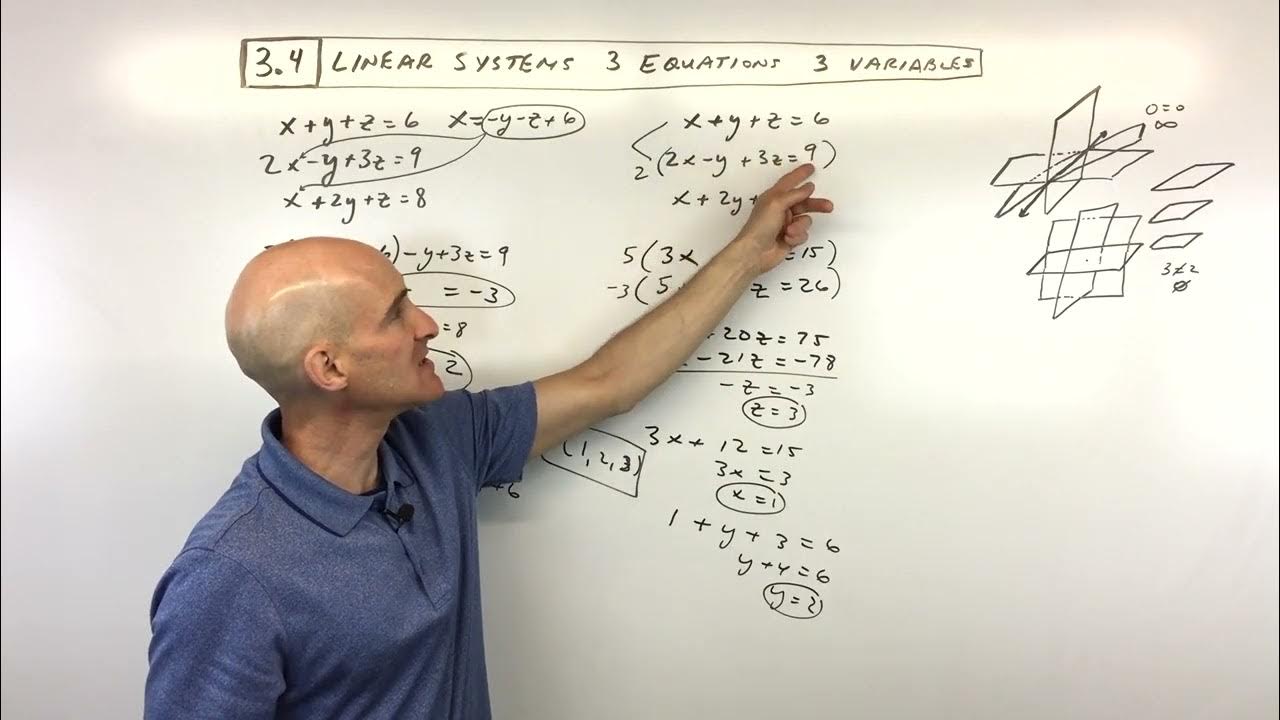 3.4 LINEAR SYSTEMS 3 EQUATIONS 3 VARIABLES
x+y+z=6 x=-y-z+6
2x-y+3z=9
x+2y+z=8
6)-y+3z=9
=-3
=8
2
+6
(1,2,3)
x+y+z=6
2(2x-y+3z=9)
x+2y+
5(3x =15)
-3(5 z=26)
20z=75
-21z=-78
-z=-3
z=3
3x+12=15
3x=3
x=1
1+y+3=6
y+4=6
y=2
0=0
∞
3≠2
∅